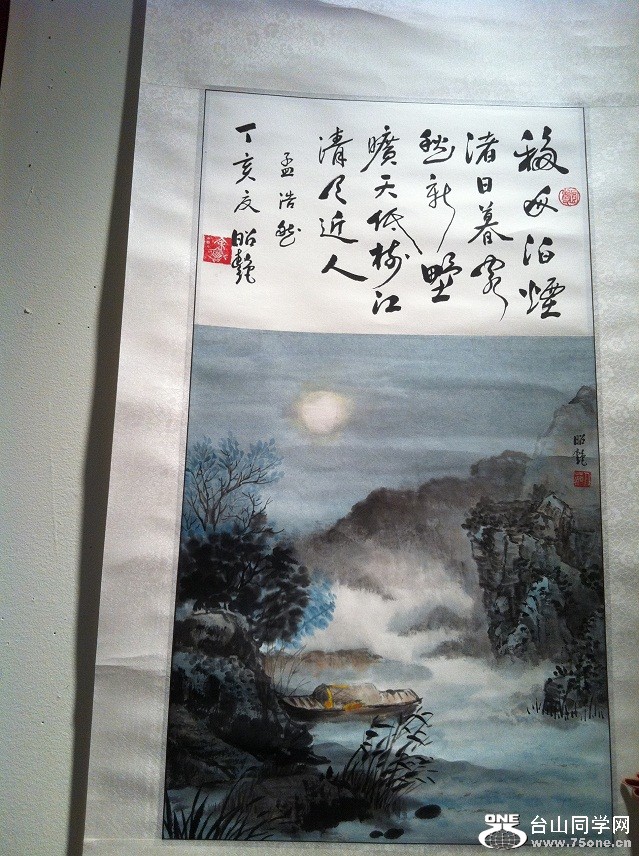 移舟泊煙
渚日暮客
愁新野
曠天低樹江
清月近人
孟浩然
丁亥夏昭艷
昭艷
ONE 台山同学网
www.75one.cn